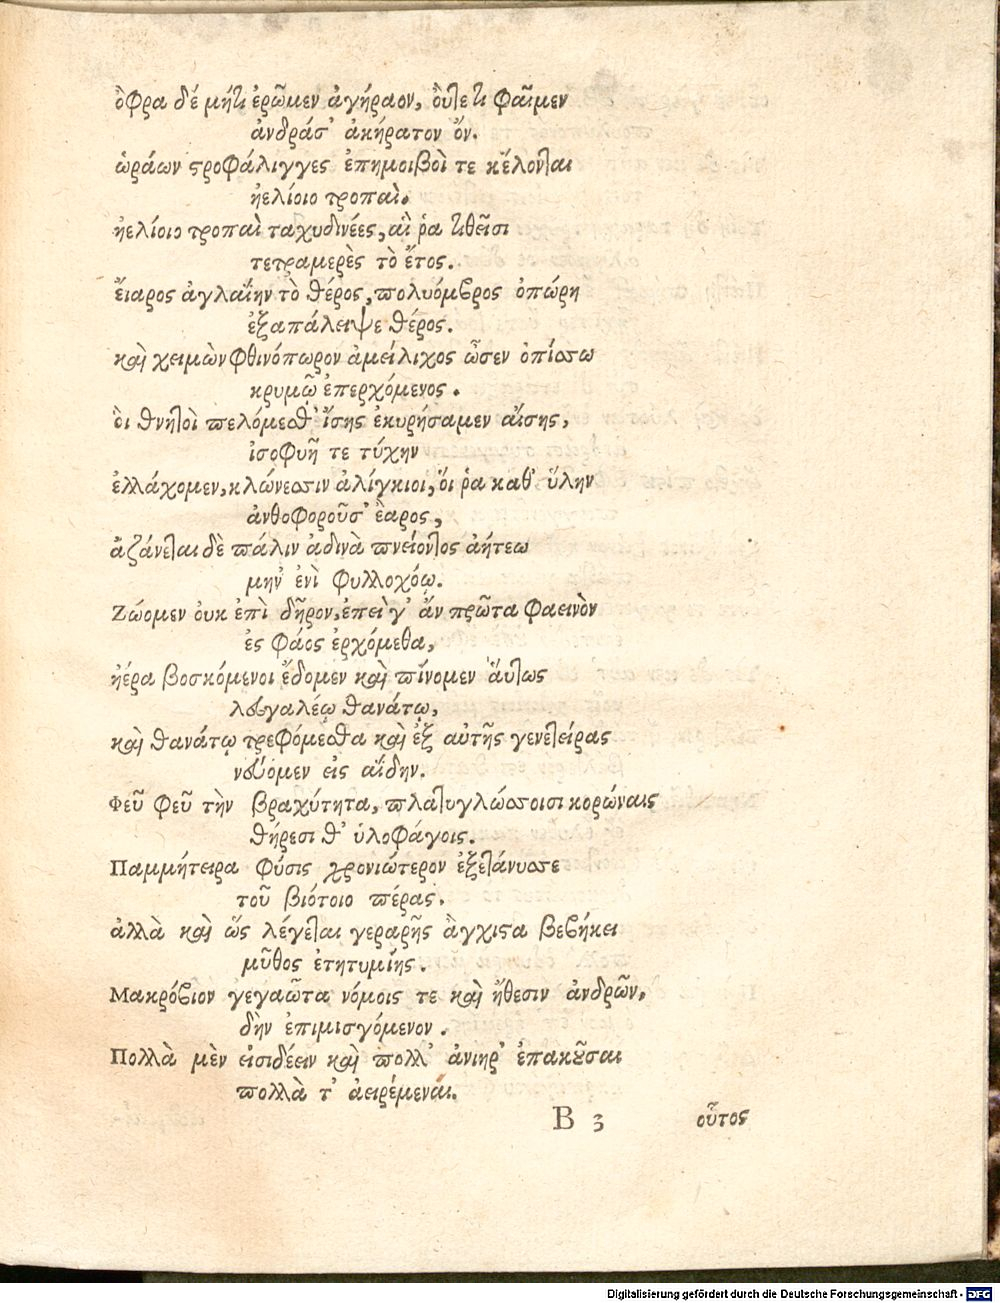 ὄφρα δέ μήτι ἐρῶμεν ἀγήραον, ὄυτετι φαῖμεν
ἀνδράσ' ἀκήρατον ὄν.
ὡράων στροφάλιγγες ἐπημοιβοὶ τε κέλονται
ἠελίοιο τροπαὶ.
ἠελίοιο τροπαὶ ταχυδινέες, αἳ ῥα τιθεῖσι
τετραμερὲς τὸ ἔτος.
ἔιαρος ἀγλαΐην τὸ θέρος, πολυόμβρος ὀπώρη
ἐξαπάλειψε θέρος.
καὶ χειμὼν φθινόπωρον ἀμείλιχος ὦσεν ὀπίσσω
κρυμῷ ἐπερχόμενος.
ὃι θνητοὶ πελόμεσθ' ἴσης ἐκυρήσαμεν αἴσης,
ἰσοφυῆ τε τύχην
ἐλλάχομεν, κλώνεσσιν ἀλίγκιοι, ὅι ῥα καθ' ὕλην
ἀνθοφοροῦσ' ἔαρος,
ἀζάνεται δὲ πάλιν ἀδινὰ πνείοντος ἀήτεω
μην' ἐνὶ φυλλοχόῳ.
Ζώομεν ὀυκ ἐπὶ δῆρον, ἐπεὶ γ' ἂν πρῶτα φαεινὸν
ἐς φάος ἐρχόμεθα,
ἠέρα βοσκόμενοι ἔδομεν καὶ πίνομεν ἅυτως
λευγαλέῳ θανάτῳ,
καὶ θανάτῳ τρεφόμεσθα καὶ ἐξ αὐτῆς γενετείρας
νεύομεν εἰς αἴδην.
Φεῦ φεῦ τὴν βραχύτητα, πλατυγλώσσοισι κορώναις
θήρεσι θ' ὑλοφάγοις.
Παμμήτειρα φύσις χρονιώτερον ἐξετάνυσσε
τοῦ βιότοιο πέρας.
ἀλλὰ καὶ ὥς λέγεται γεραρῆς ἄγχιστα βεβήκει
μῦθος ἐτητυμίης.
Μακρόβιον γεγαῶτα νόμοις τε καὶ ἤθεσιν ἀνδρῶν,
δὴν ἐπιμισγόμενον.
Πολλὰ μὲν εἰσιδέειν καὶ πολλ' ἀνιηρ' ἐπακοῦσαι
πολλὰ τ' ἀειρέμεναι.
B 3 οὗτος
Digitalisierung gefördert durch die Deutsche Forschungsgemeinschaft - DFG